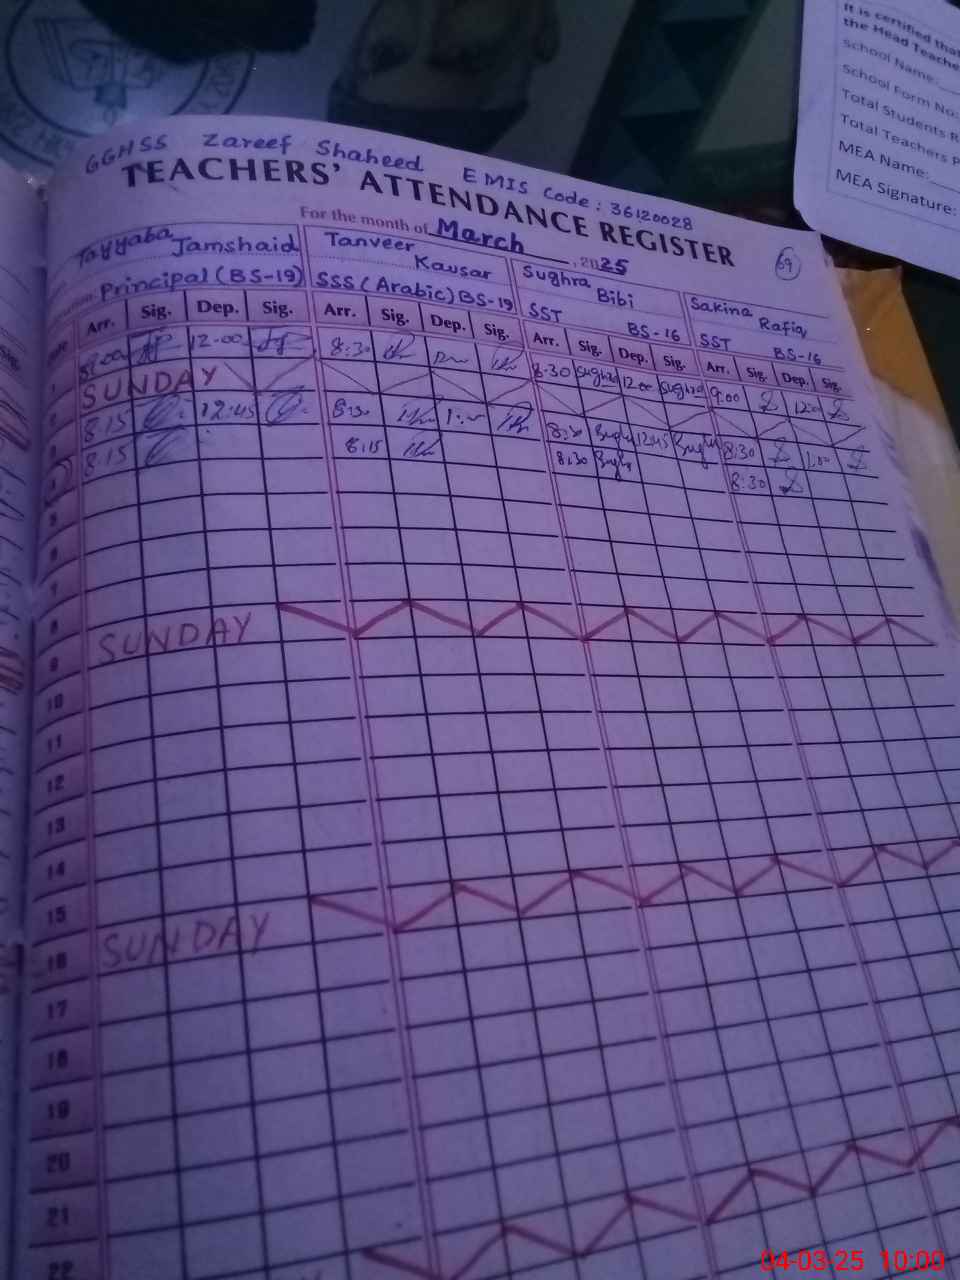 It is certified that
the Head Teache
School Name:
School Form No:
Total Students R
Total Teachers P
MEA Name:
MEA Signature:
GGHSS Zareef Shaheed EMIS Code: 36120028
TEACHERS' ATTENDANCE REGISTER
For the month of March, 2025
69
Tayyaba Jamshaid
Principal (BS-19)
Tanveer Kausar
SSS (Arabic) BS-19
Sughra Bibi
SST BS-16
Sakina Rafiq
SST BS-16
Arr. Sig. Dep. Sig. Arr. Sig. Dep. Sig. Arr. Sig. Dep. Sig. Arr. Sig. Dep. Sig.
8:00 12-00 8:30 8-30 Sughra 12:00 Sughra 9:00 12:00
SUNDAY
8:15 12:45 8:30 8:30 Sughra 12:45 Sughra 8:30 1:00
8:15 8:15 8:30 Sughra 8:30
5
6
7
8
SUNDAY
9
10
11
12
13
14
15
SUNDAY
16
17
18
19
20
21
22
04-03-25 10:00